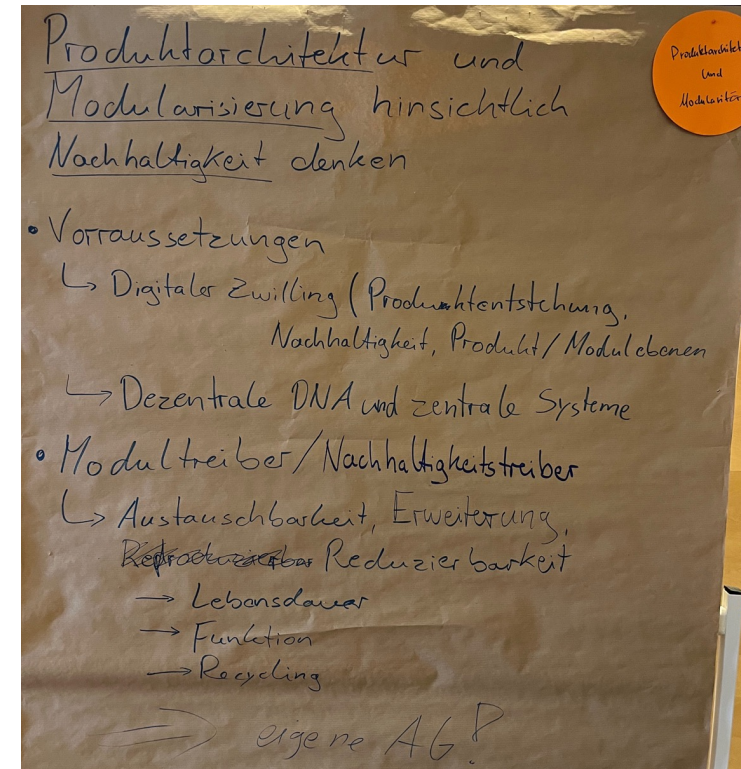 Produktarchitektur und
Modularisierung hinsichtlich
Nachhaltigkeit denken
Produktarchitekt
und
Modularität
• Vorraussetzungen
↳ Digitaler Zwilling (Produktentstehung,
Nachhaltigkeit, Produkt/Modulebenen
↳ Dezentrale DNA und zentrale Systeme
• Modultreiber/Nachhaltigkeitstreiber
↳ Austauschbarkeit, Erweiterung,
Reduzierbarkeit
→ Lebensdauer
→ Funktion
→ Recycling
⇒ eigene AG?